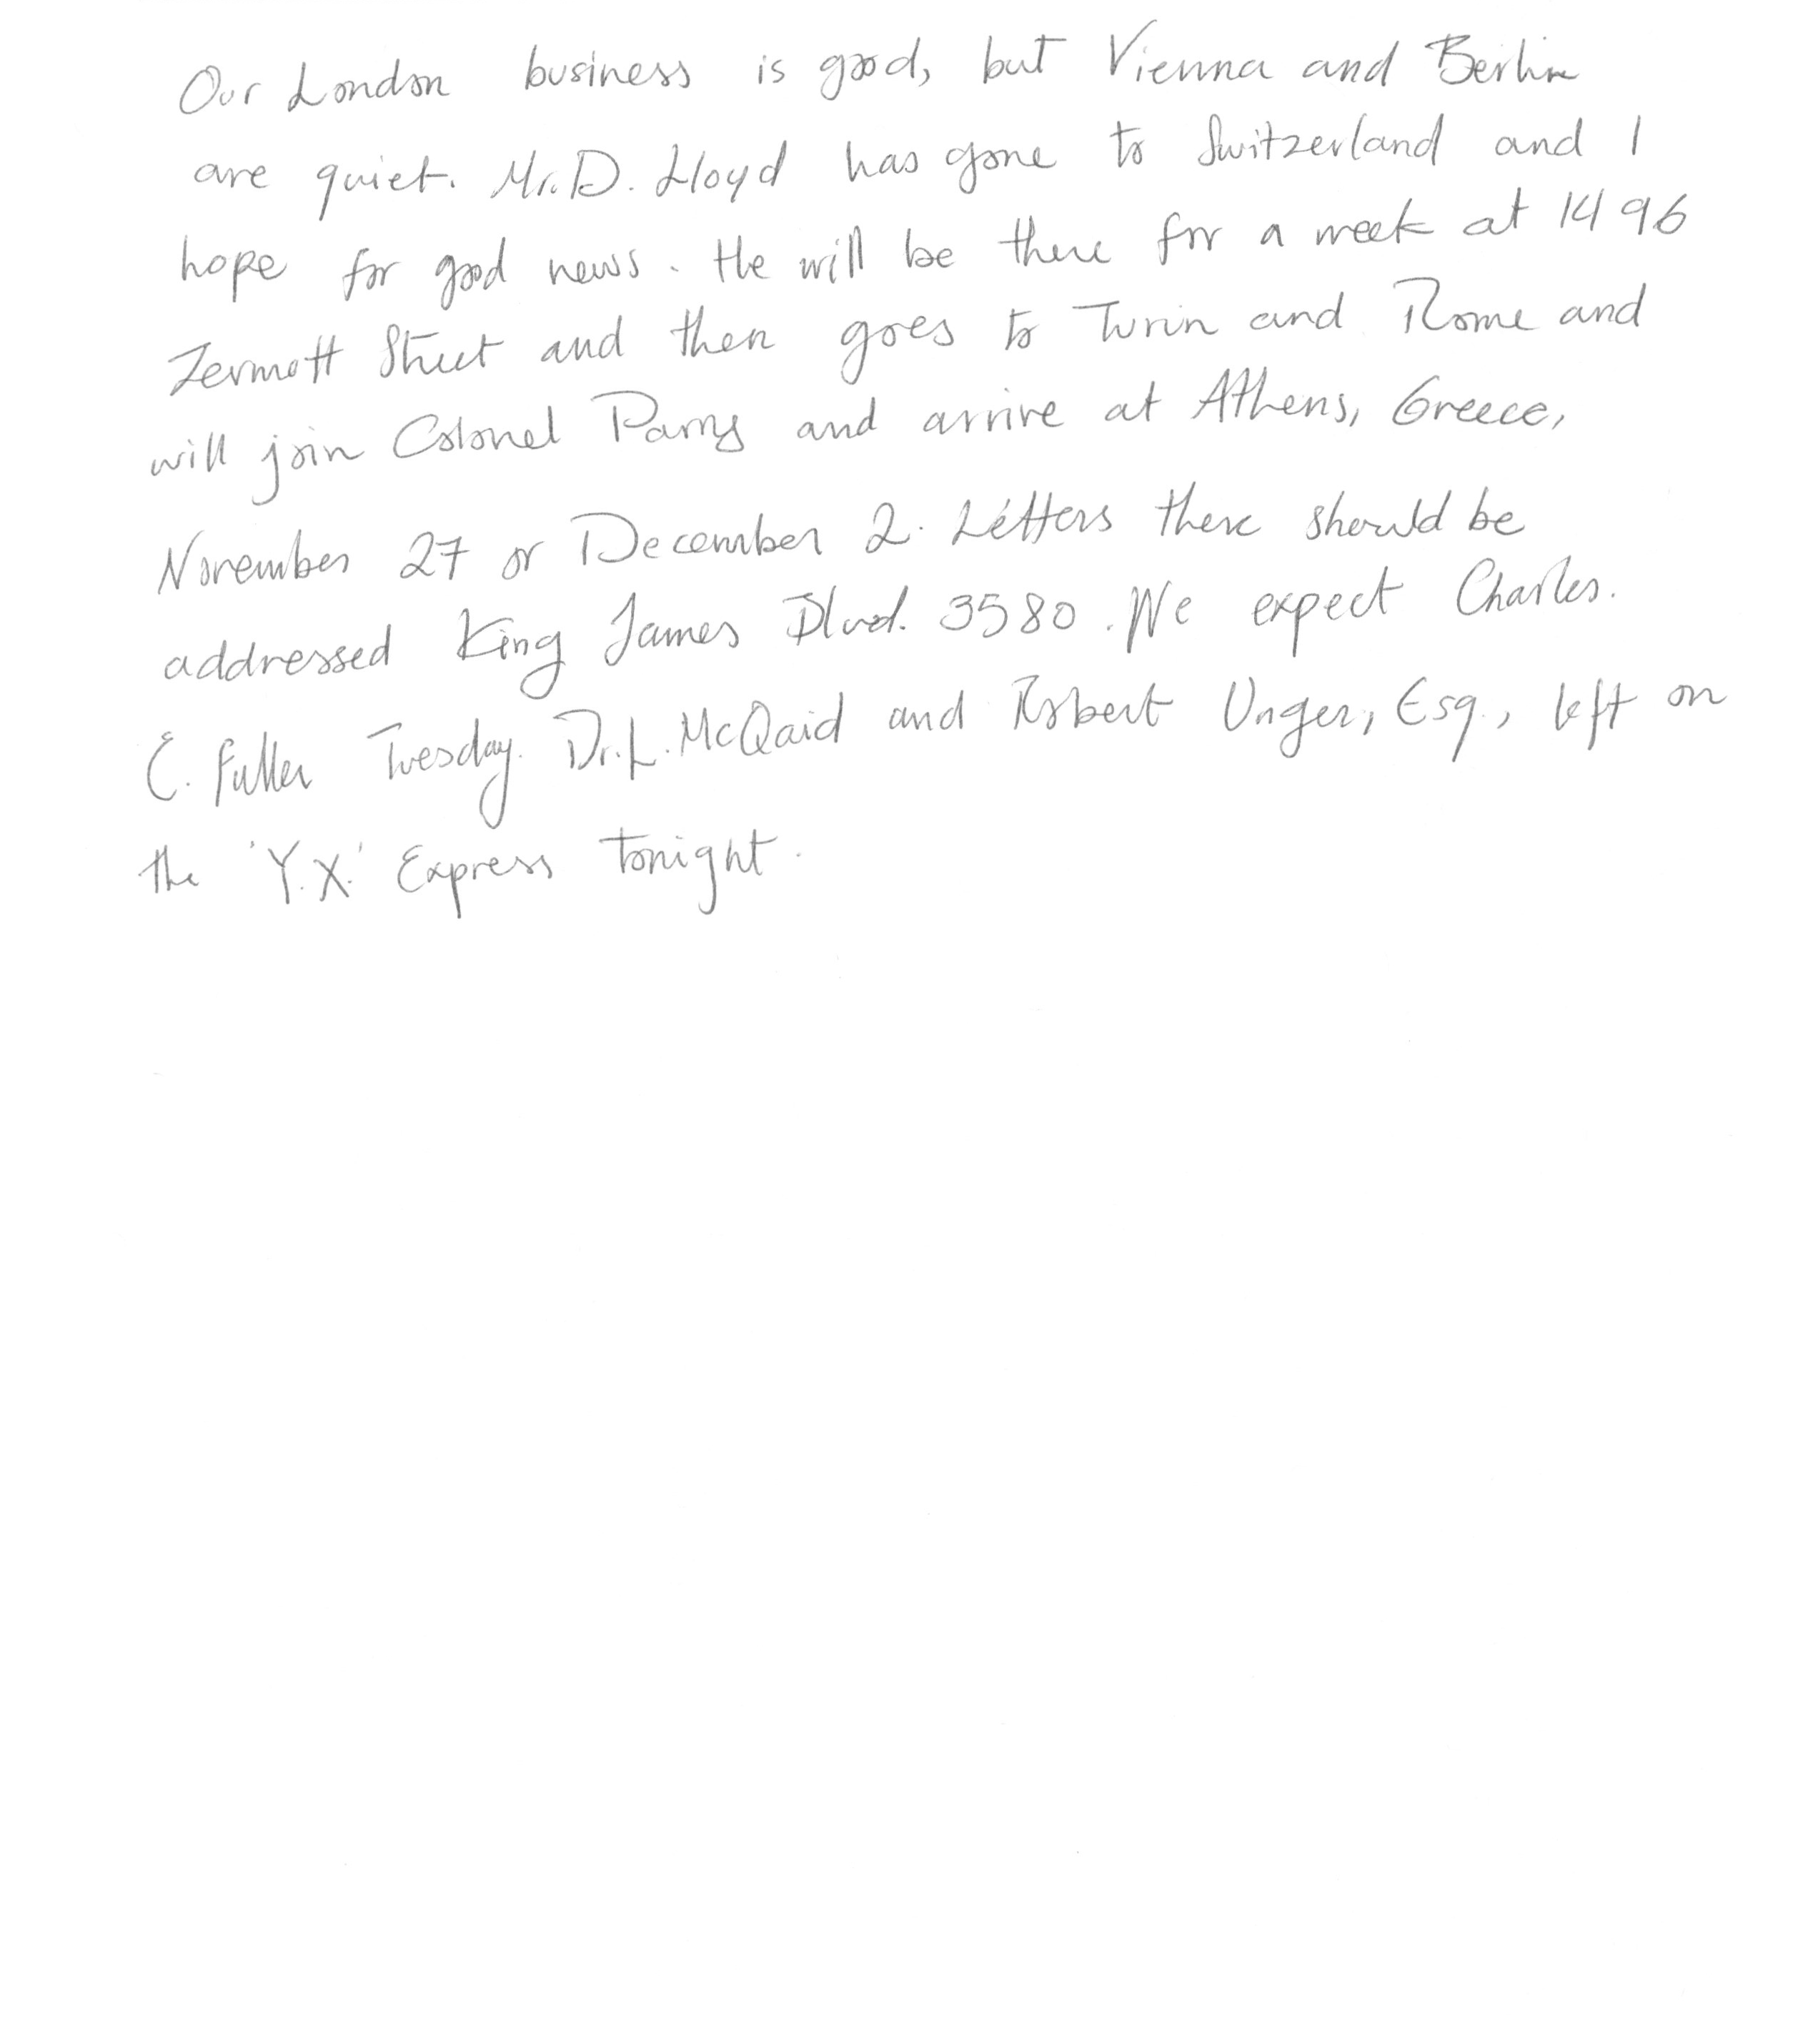 Our London business is good, but Vienna and Berlin
are quiet. Mr. D. Lloyd has gone to Switzerland and I
hope for good news. He will be there for a week at 1496
Zermott Street and then goes to Turin and Rome and
will join Colonel Parry and arrive at Athens, Greece,
November 27 or December 2. Letters there should be
addressed King James Blvd. 3580. We expect Charles.
E. Fuller Tuesday. Dr. L. McQaid and Robert Unger, Esq., left on
the 'Y.X.' Express tonight.